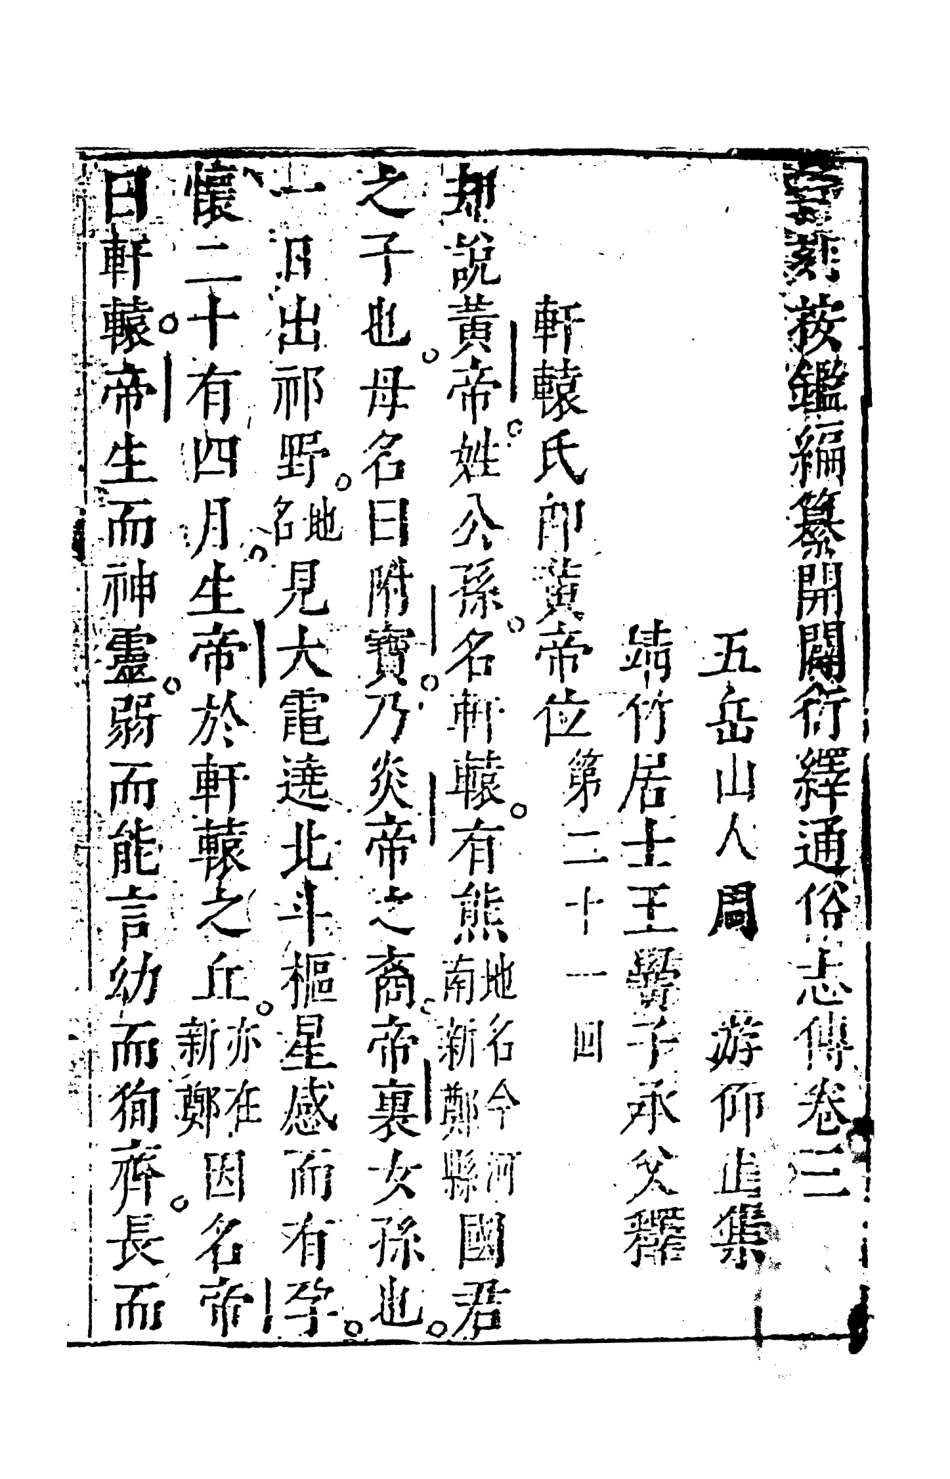 刻按鑑編纂開闢衍繹通俗志傳卷三
五岳山人周　游仰止集
靖竹居士王黌子承父釋
軒轅氏卽黃帝位第二十一囘
却說黃帝姓公孫。名軒轅。有熊地名今河南新鄭縣國君
之子也。母名曰附寶。乃炎帝之裔。帝裏女孫也。
一日出祁野。地名見大電遶北斗樞星感而有孕。
懷二十有四月。生帝於軒轅之丘。亦在新鄭因名帝
曰軒轅。帝生而神靈。弱而能言幼而狥齊。長而